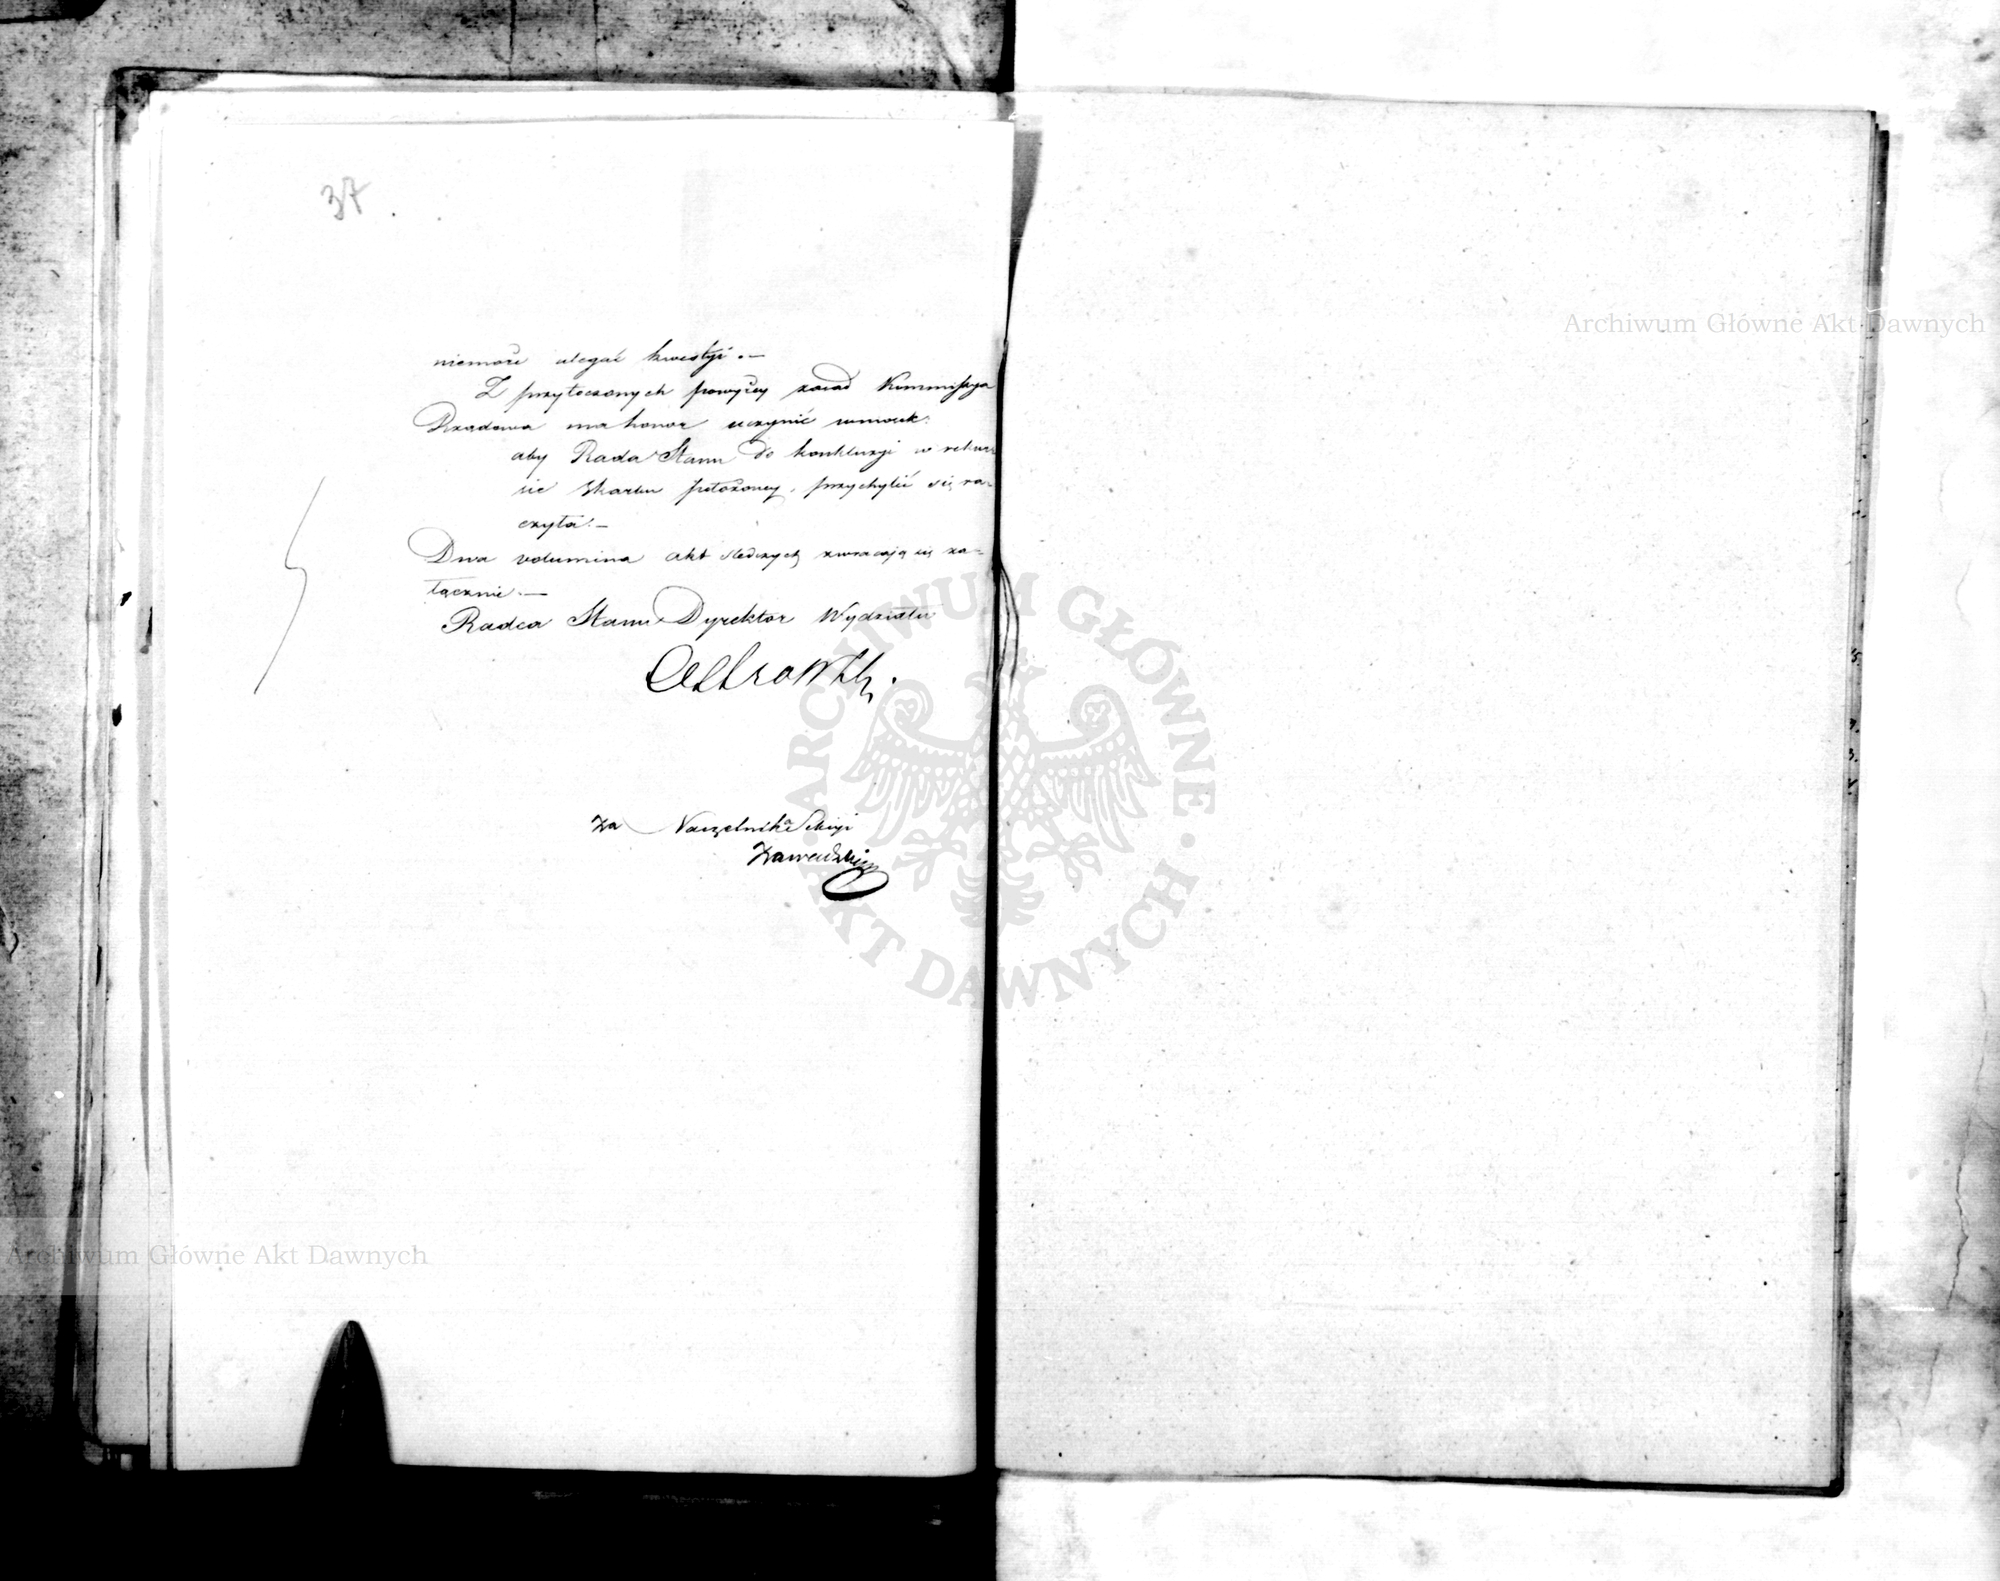 37
niemoże ulegać kwestyi. —
Z przytoczonych powyżey zasad Kommissya
Rządowa ma honor uczynić wniosek:
aby Rada Stanu do konkluzyi w rekur-
sie Skarbu położoney, przychylić się ra-
czyła. —
Dwa volumina akt śledczych zwracają się za-
łącznie. —
Radca Stanu Dyrektor Wydziału
Za Naczelnika Sekcyi
Zawadzki
Archiwum Główne Akt Dawnych
Archiwum Główne Akt Dawnych
ARCHIWUM GŁÓWNE · AKT DAWNYCH ·